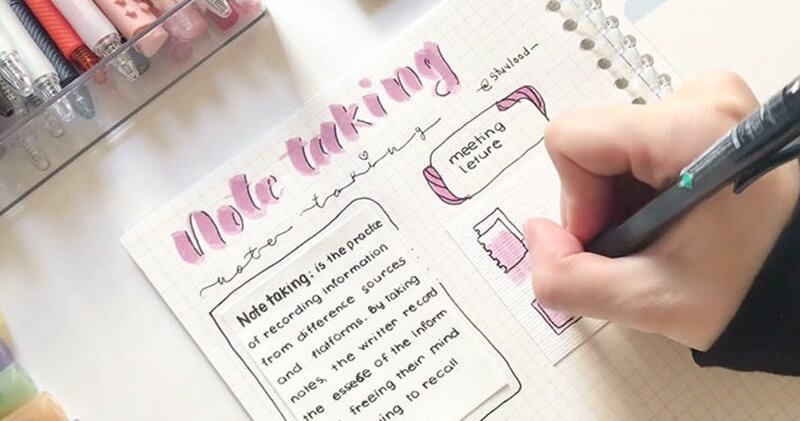 Note taking
note taking
@stuvlood_
meeting
leture
Note taking: is the practice
of recording information
from difference sources
and flatforms. By taking
notes, the writter record
the essese of the inform
freeing their mind
to recall